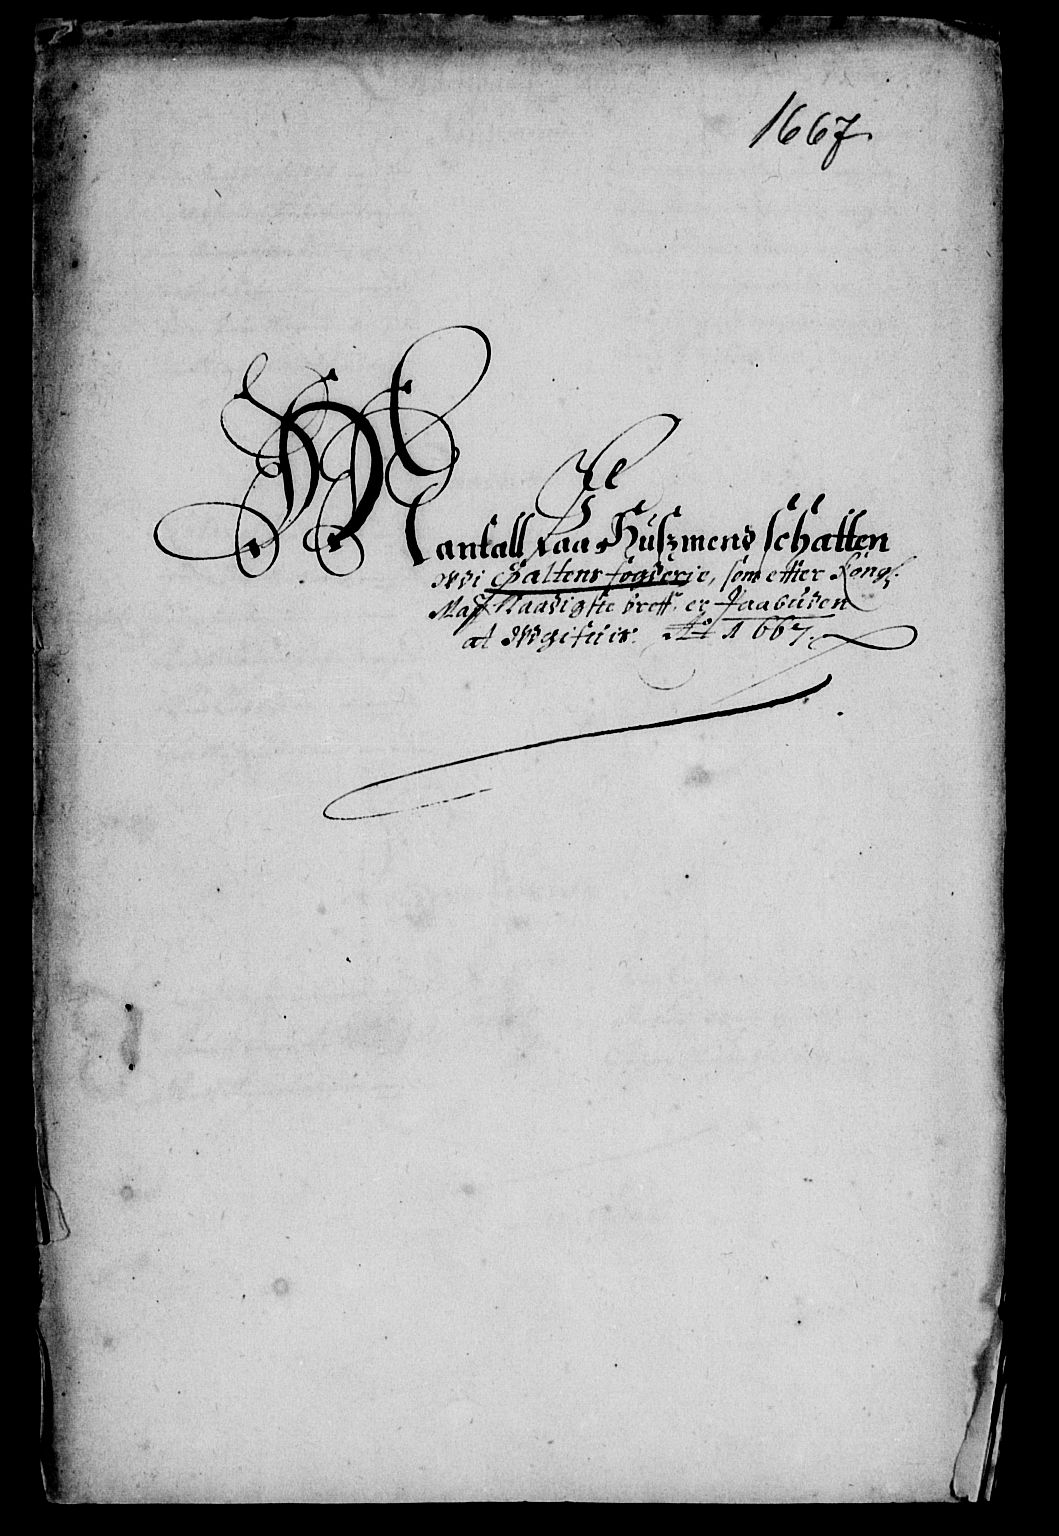 1667
Mantall paa Huszmend schatten
Wdi Saltens fogderie, som effter Kongl:
May: Naadigste breff, er Paabuden
at Wdgifuis. Ao 1667.